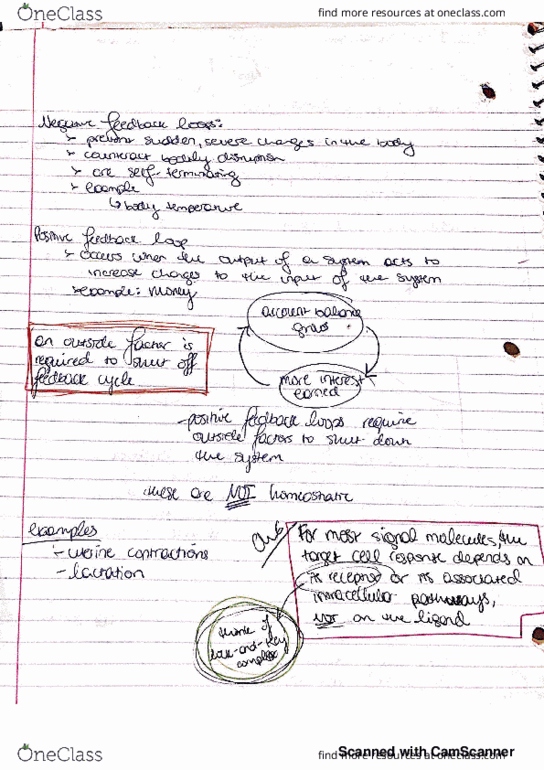 OneClass
find more resources at oneclass.com
Negative feedback loops:
prevent sudden, severe changes in the body
counteract bodily disruption
are self-terminating
example
↳ body temperature
Positive feedback loop
occurs when the output of a system acts to
increase changes to the input of the system
example: money
account balance
grows
more interest
earned
an outside factor is
required to shut off
feedback cycle
-positive feedback loops require
outside factors to shut down
the system
these are NOT homeostatic
examples
- uterine contractions
- lactation
For most signal molecules, the
target cell response depends on
its receptor or its associated
intracellular pathways,
NOT on the ligand
think of
lock-and-key
complex
OneClass
find more resources at oneclass.com
Scanned with CamScanner